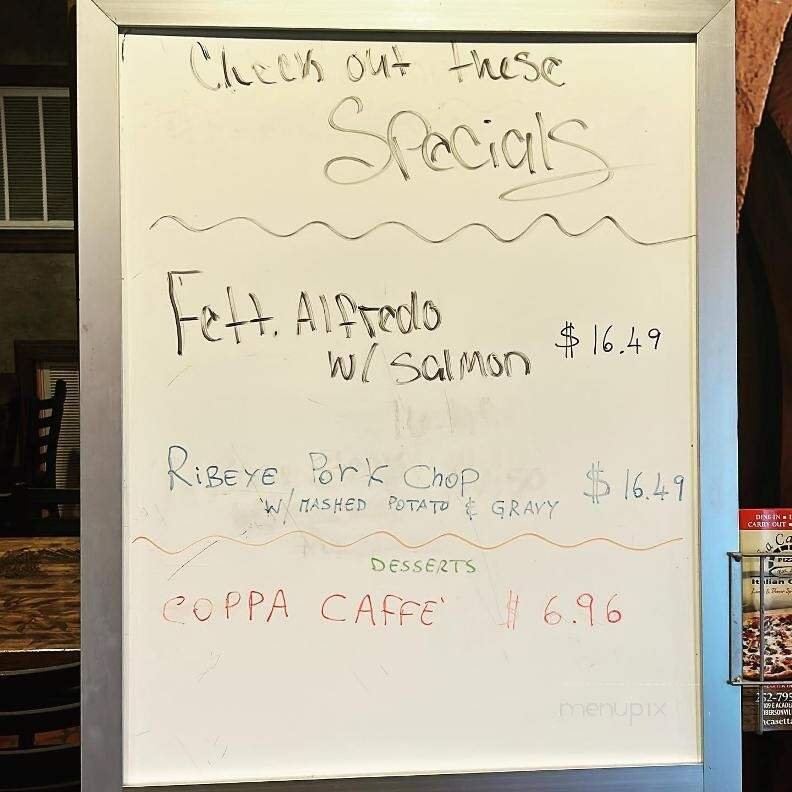 Check out these
Specials
Fett. Alfredo
w/ Salmon $ 16.49
RIBEYE Pork Chop $ 16.49
W/ MASHED POTATO & GRAVY
DESSERTS
COPPA CAFFE' $ 6.96
menupix
DINE-IN
CARRY OUT
PIZZ
Italian
252-795